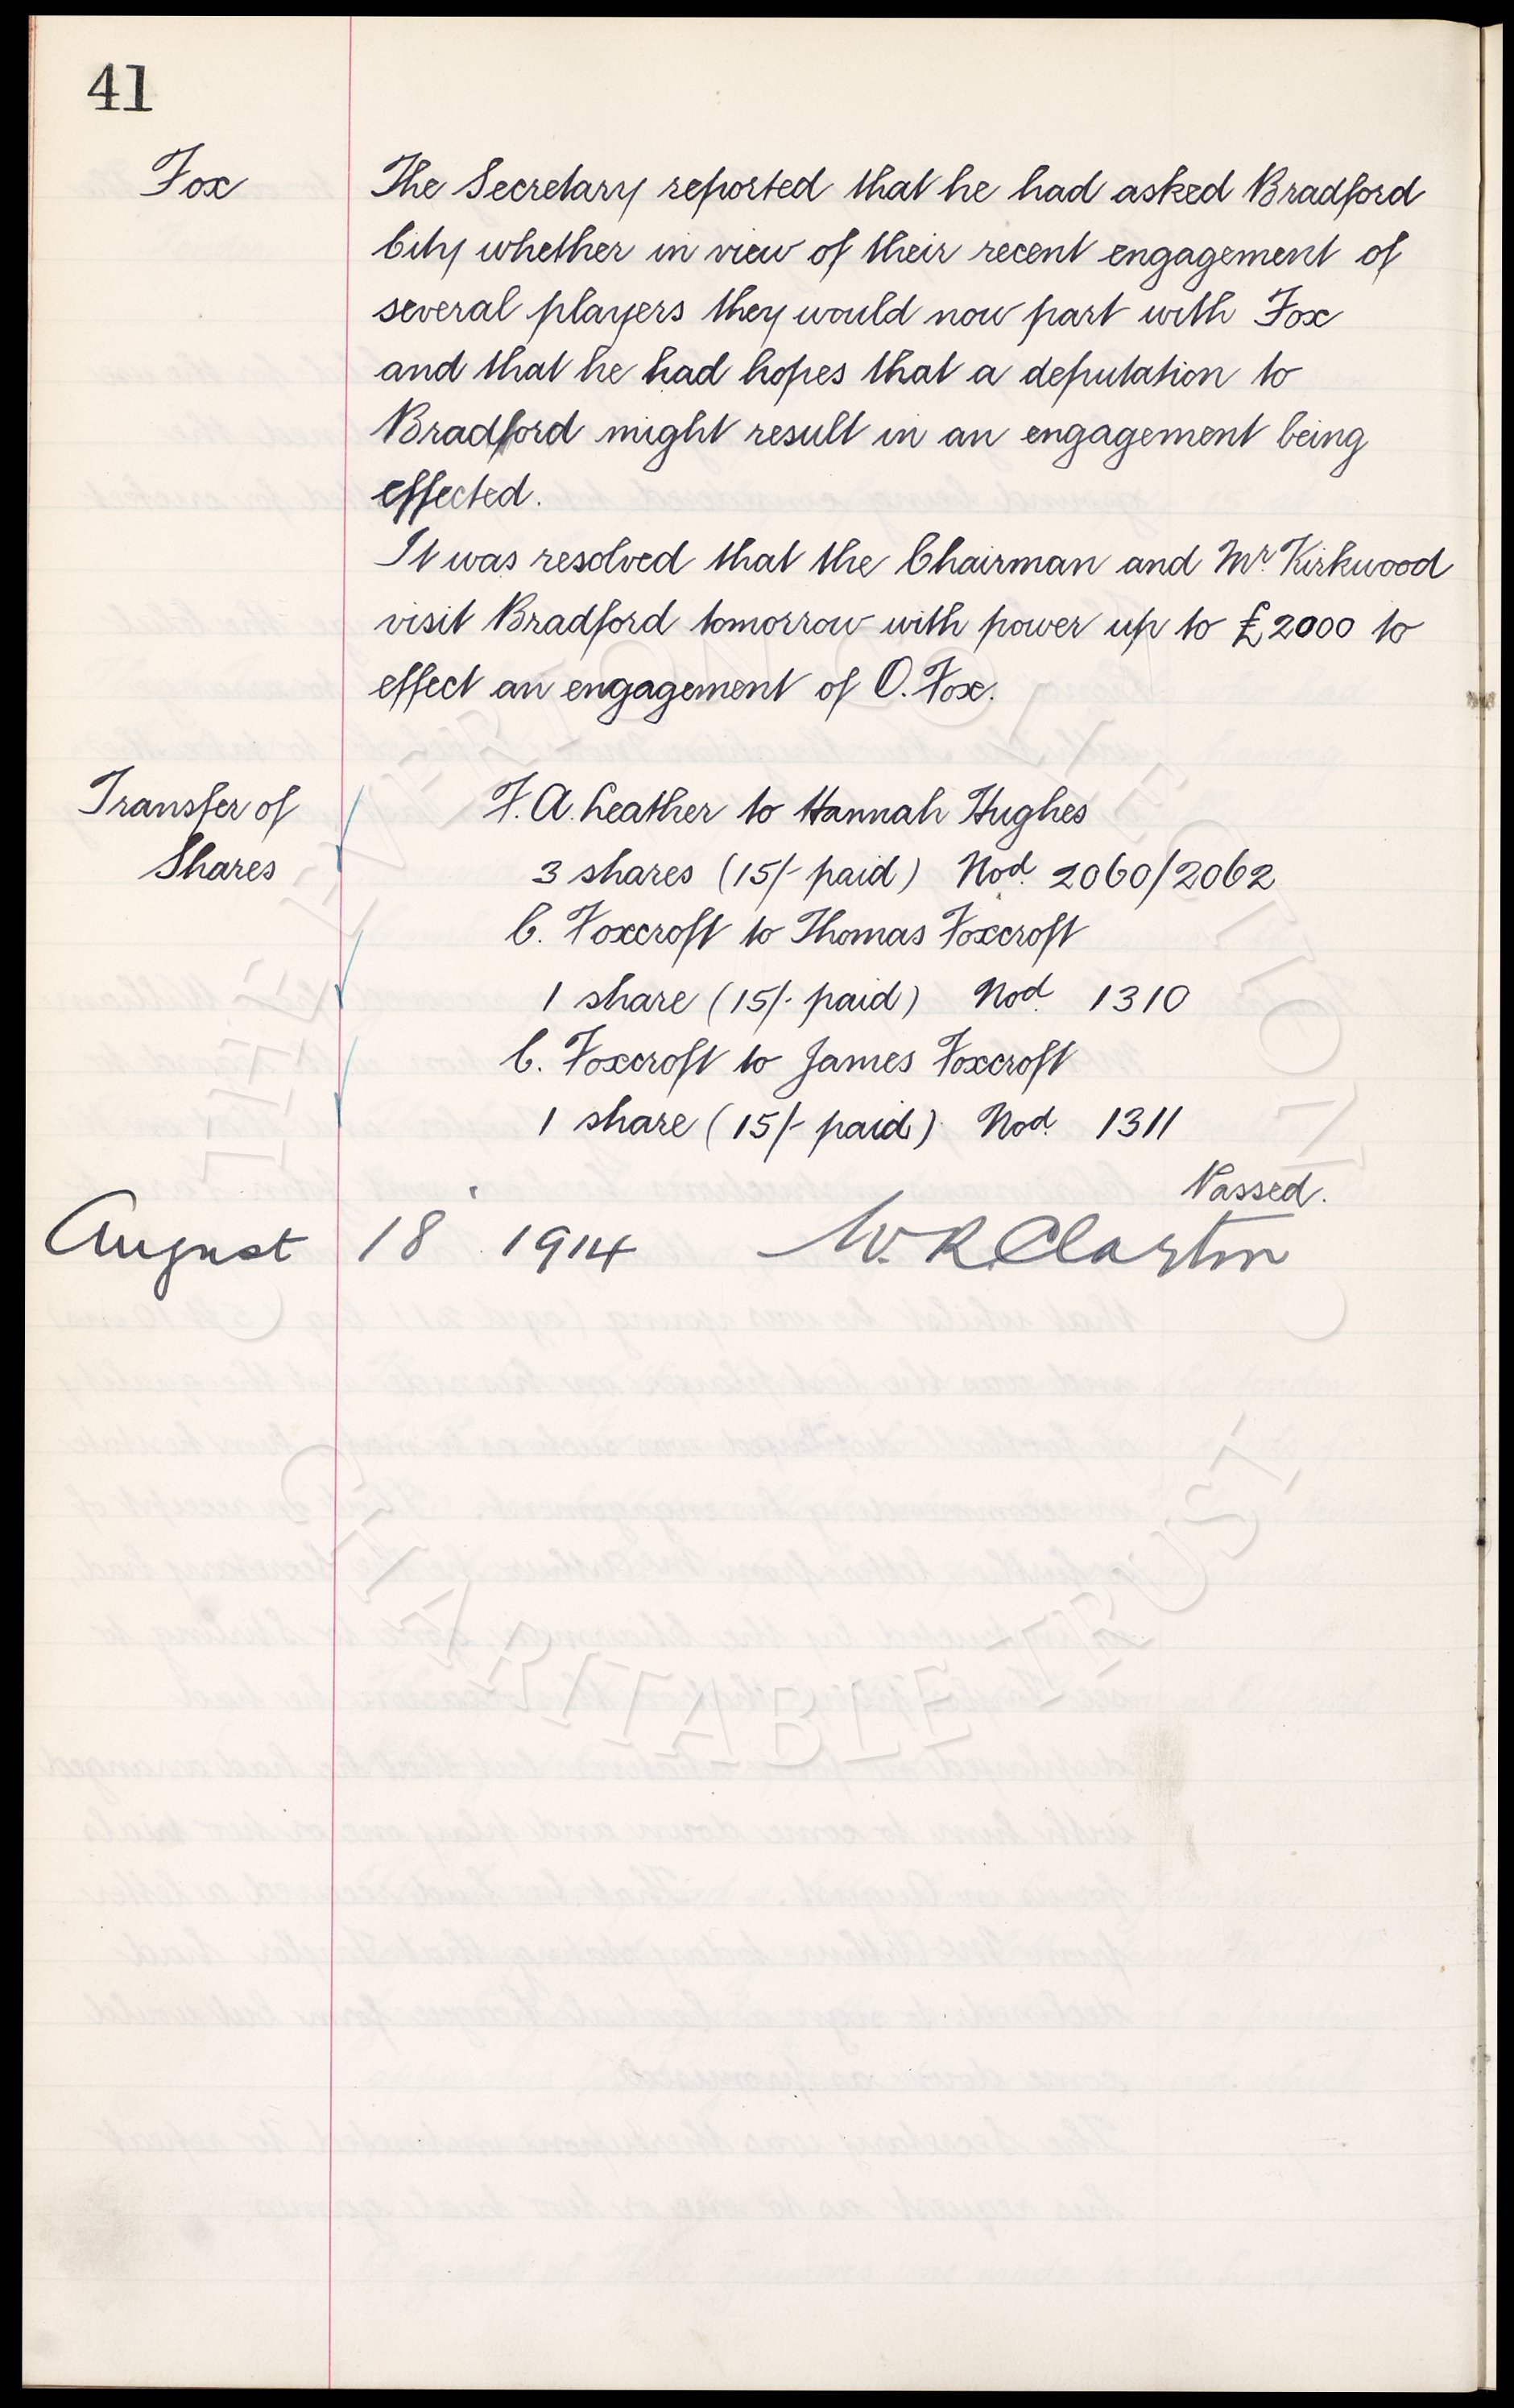 41
Fox
The Secretary reported that he had asked Bradford
City whether in view of their recent engagement of
several players they would now part with Fox
and that he had hopes that a deputation to
Bradford might result in an engagement being
effected.
It was resolved that the Chairman and Mr. Kirkwood
visit Bradford tomorrow with power up to £2000 to
effect an engagement of O. Fox.
Transfer of
Shares
F. A. Leather to Hannah Hughes
3 shares (15/- paid) Nod. 2060/2062
C. Foxcroft to Thomas Foxcroft
1 share (15/- paid) Nod. 1310
C. Foxcroft to James Foxcroft
1 share (15/- paid) Nod. 1311
Passed.
August 18 1914 W. R. Clayton
CHARITABLE TRUST